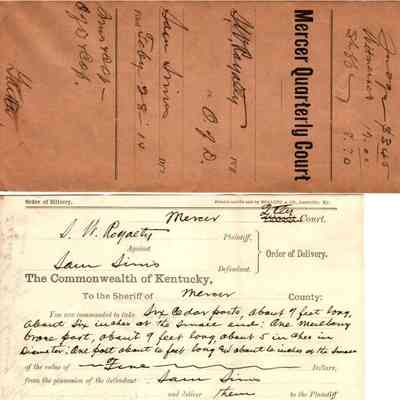 Judge $3.45
Witnesses
Shff
Mercer Quarterly Court
S W Royalty
O of D.
Sam Sims
Feby 28 - 14
O of D
Order of Delivery.
Mercer Qtly Court.
S. W. Royalty Plaintiff,
Against Order of Delivery.
Sam Sims Defendant.
The Commonwealth of Kentucky,
To the Sheriff of Mercer County:
You are commanded to take Six Cedar posts, about 7 feet long,
about six inches at the small end: One
post, about 9 feet long about 5 inches in
Diameter: One post about 10 feet long & about 10 inches at the
of the value of Five Dollars,
from the possession of the defendant Sam Sims
and deliver them to the Plaintiff